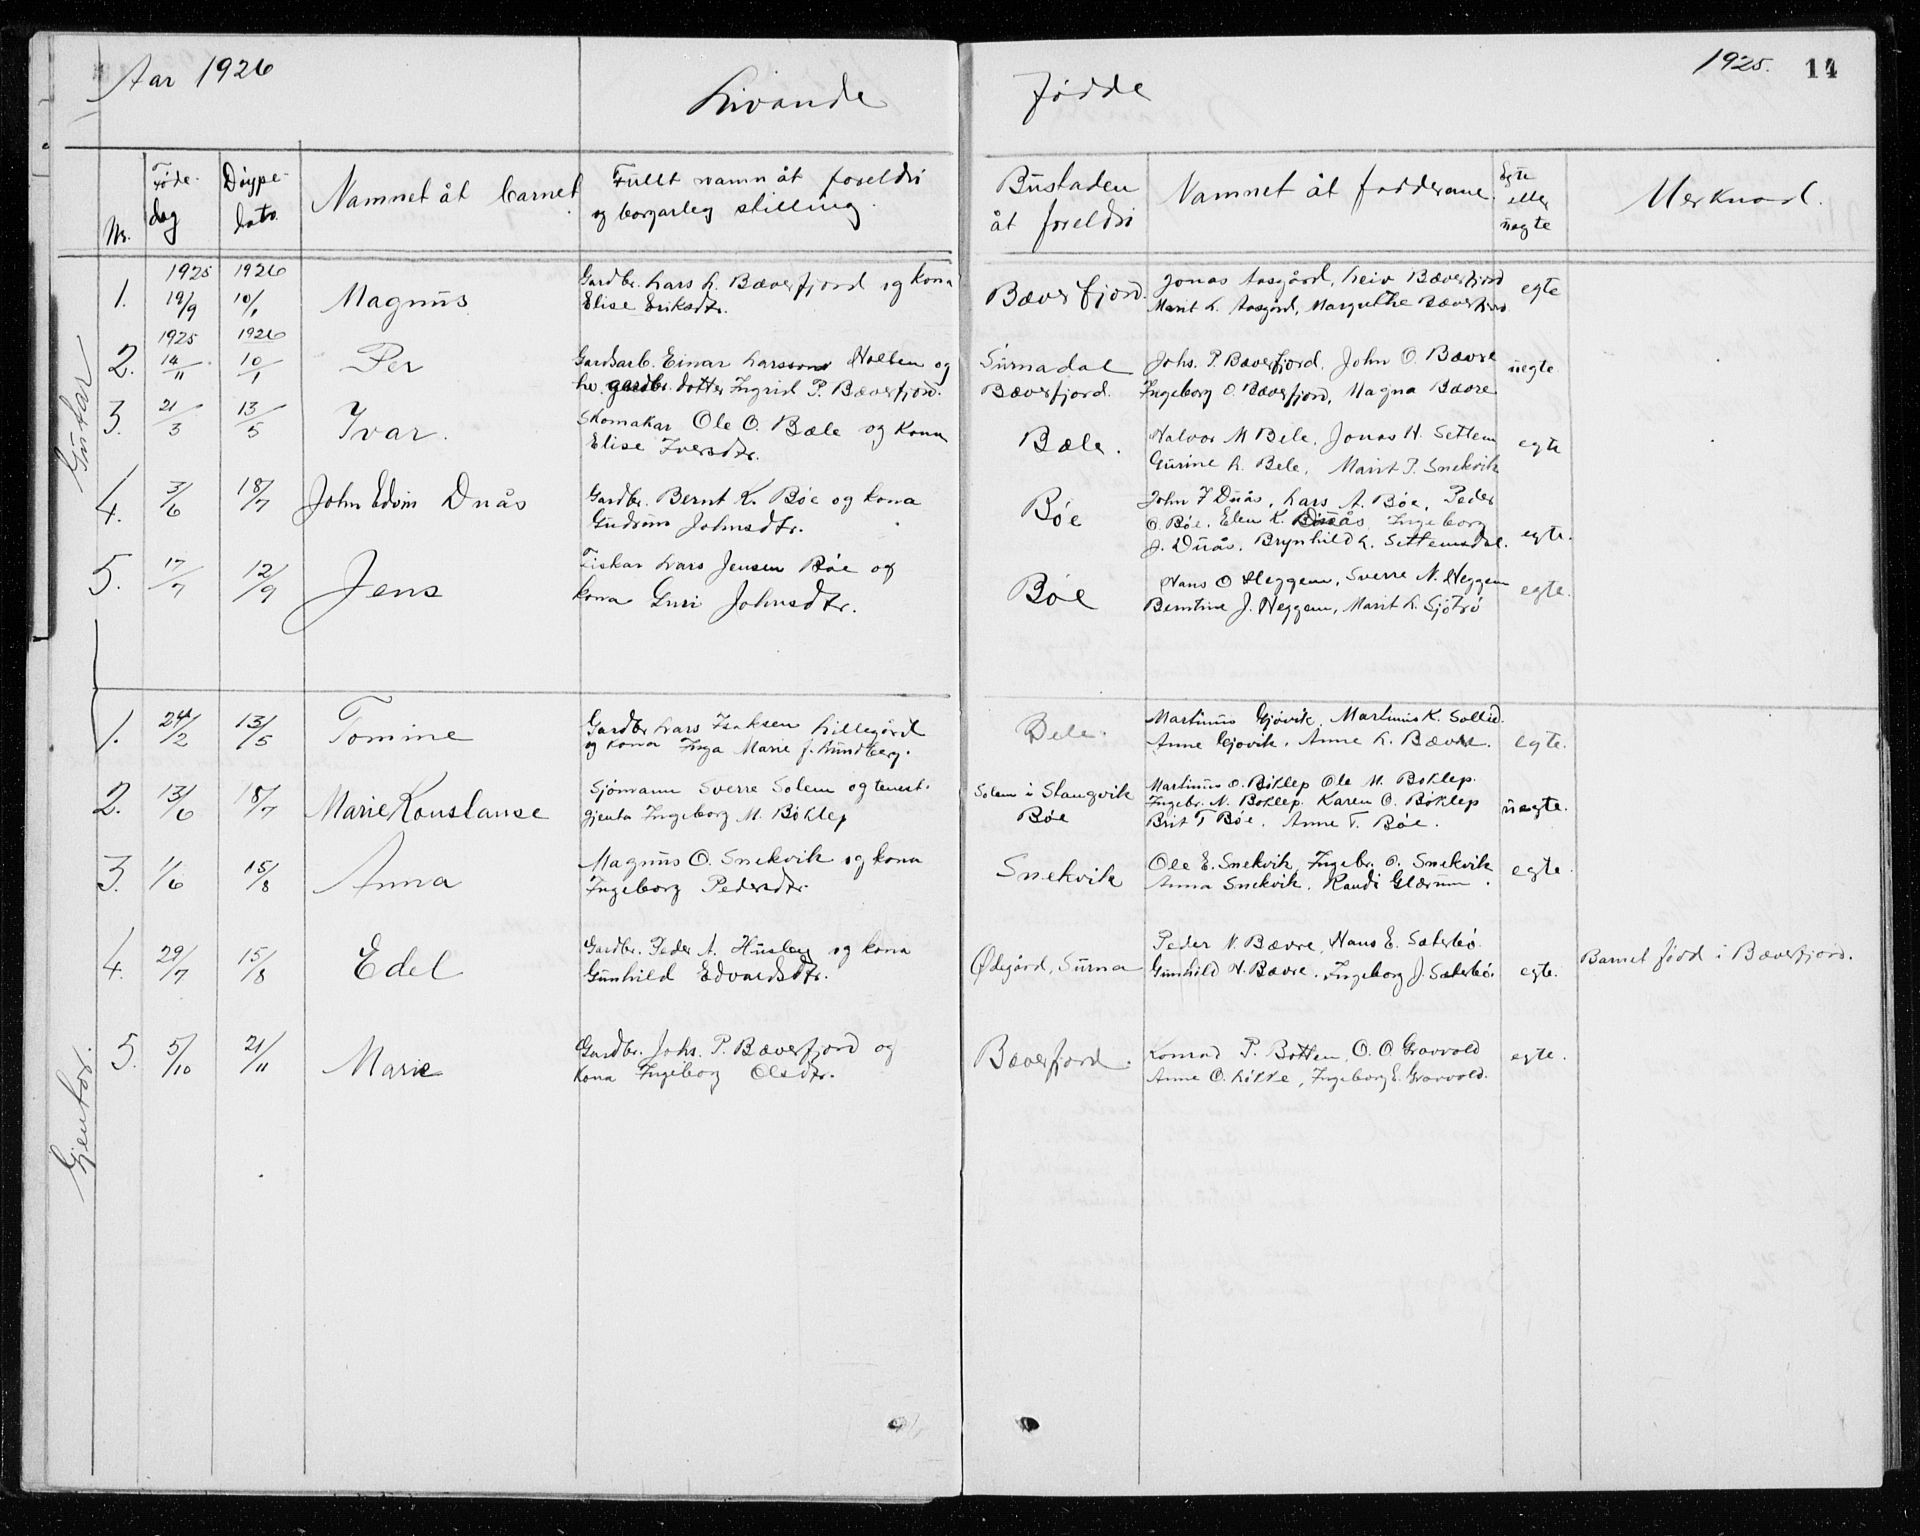 Aar 1926
Livande
Fødde
1925.
14
Nr.
Føde-
dag
Døype-
dato.
Namnet åt barnet
Fullt namn åt foreldri
og borgarleg stilling.
Bustaden
åt foreldri
Namnet åt fadderane
Egte
eller
uegte
Merknad.
Gutar
1.
1925
19/9
1926
10/1
Magnus
Gardbr. Lars L. Bæverfjord og kona
Elise Eriksdtr.
Bæverfjord.
Jonas Aasgård, Leiv Bæverfjord
Marit L. Aasgård, Margrethe Bæverfjord
egte
2.
1925
14/11
1926
10/1
Per
Gardsarb. Einar Larsson Holten og
hv. gardbr. dotter Ingrid P. Bæverfjord.
Surnadal
Bæverfjord.
Johs. P. Bæverfjord, John O. Bævre
Ingeborg O. Bæverfjord, Magna Bævre
uegte
3.
21/3
13/5
Ivar.
Skomakar Ole O. Bæle og kona
Elise Iversdtr.
Bæle.
Halvor M Bele, Jonas H. Settem
Gurine L. Bele, Marit P. Snekvik
egte
4.
3/6
18/7
John Edvin Duås
Gardbr. Bernt K. Bøe og kona
Gudrun Johnsdtr.
Bøe
John J Duås, Lars A. Bøe, Peder
O. Bøe, Elen K. Duås, Ingeborg
J. Duås, Brynhild L. Settemsdal.
egte.
5.
17/7
12/9
Jens
Fiskar Lars Jensen Bøe og
kona Guri Johnsdtr.
Bøe
Hans O Heggem, Sverre N. Heggem
Berntine J. Heggem, Marit L. Sjøtrø
egte.
Gjentor.
1.
24/2
13/5
Tomine
Gardbr Lars Isaksen Lillegård
og kona Inga Marie f. Lundberg.
Bele.
Martinus Gjøvik, Martinus K. Sollid.
Anne Gjøvik, Anne L. Bævre.
egte.
2.
13/6
18/7
Marie Konstanse
Sjømann Sverre Solem og tenest-
gjenta Ingeborg M. Bøklep
Solem i Stangvik
Bøe
Martinus O. Bøklep Ole M. Bøklep.
Ingebr. N. Bøklep. Karen O. Bøklep
Brit T Bøe. Anne T. Bøe.
uegte.
3.
1/6
15/8
Anna
Magnus O. Snekvik og kona
Ingeborg Pedersdtr.
Snekvik
Ole E. Snekvik, Ingebr. O. Snekvik
Anna Snekvik. Randi Glærum.
egte.
4.
29/7
15/8
Edel
Gardbr. Peder A. Husby og kona
Gunhild Edvardsdtr.
Ødegård, Surna
Peder N. Bævre, Hans E. Sæterbø
Gunhild H. Bævre. Ingeborg J. Sæterbø.
egte.
Barnet født i Bæverfjord.
5.
5/10
21/11
Marie
Gardbr. Johs. P. Bæverfjord og
kona Ingeborg Olsdtr.
Bæverfjord.
Konrad P. Botten, O. O. Gravvold
Anne O. Løkke, Ingeborg E. Gravvold.
egte.